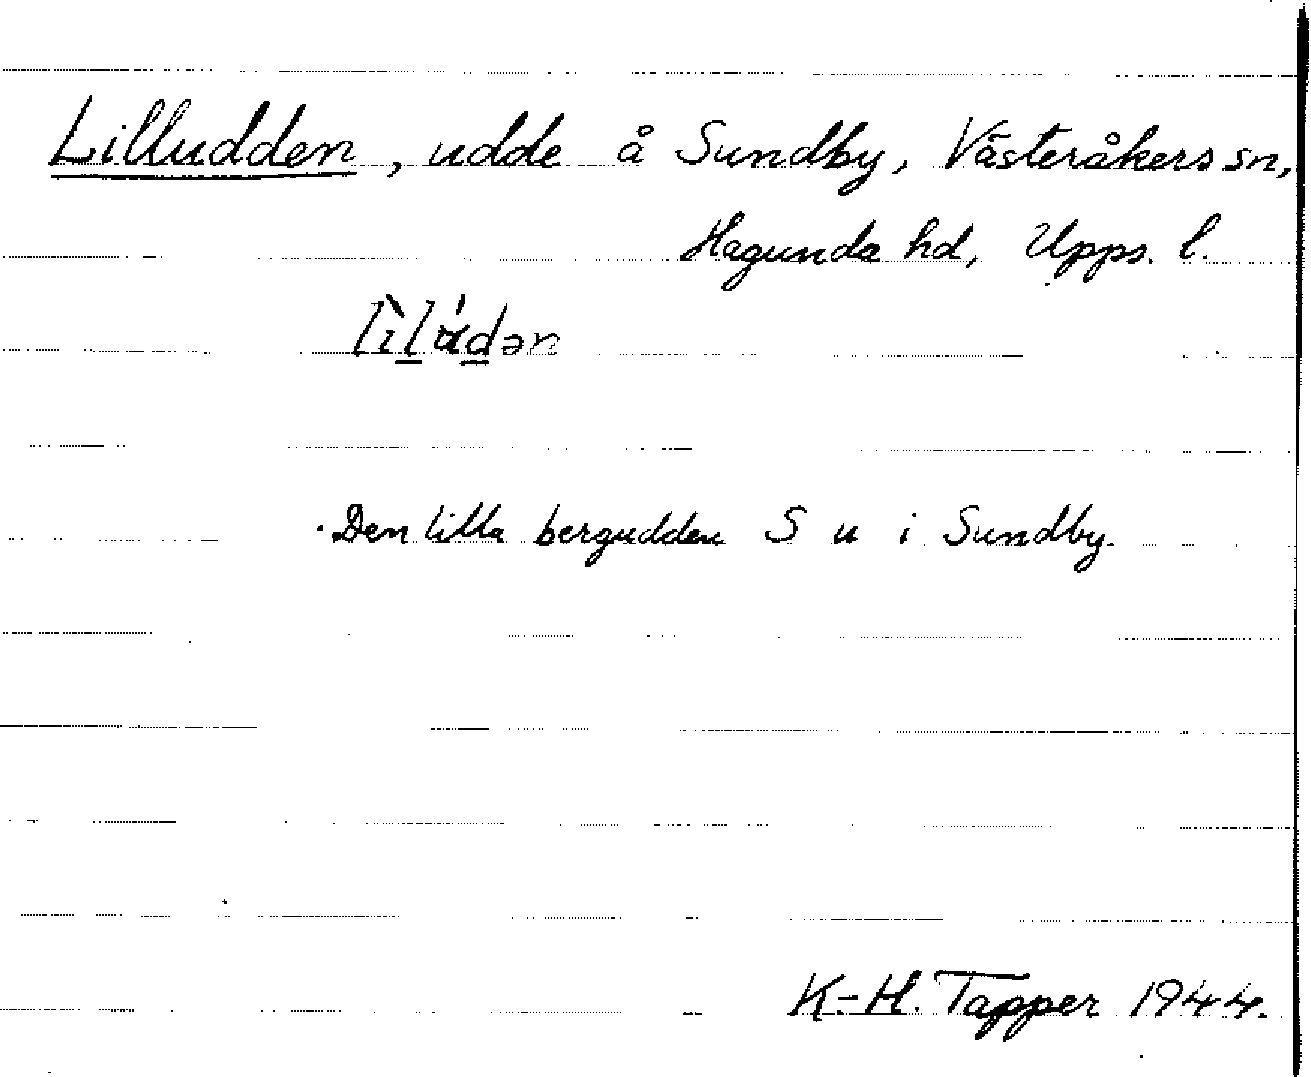 Lilludden, udde å Sundby, Västeråkers sn,
Hagunda hd, Upps. l.
Den lilla bergudden S u i Sundby.
K.-H. Tapper 1944.